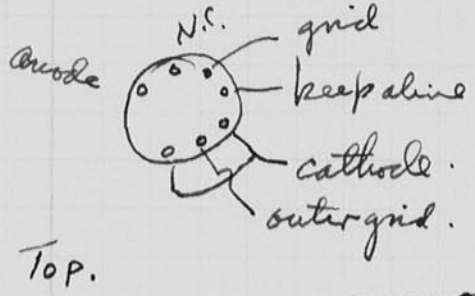 N.C.
grid
anode
keep alive
cathode.
outer grid.
Top.